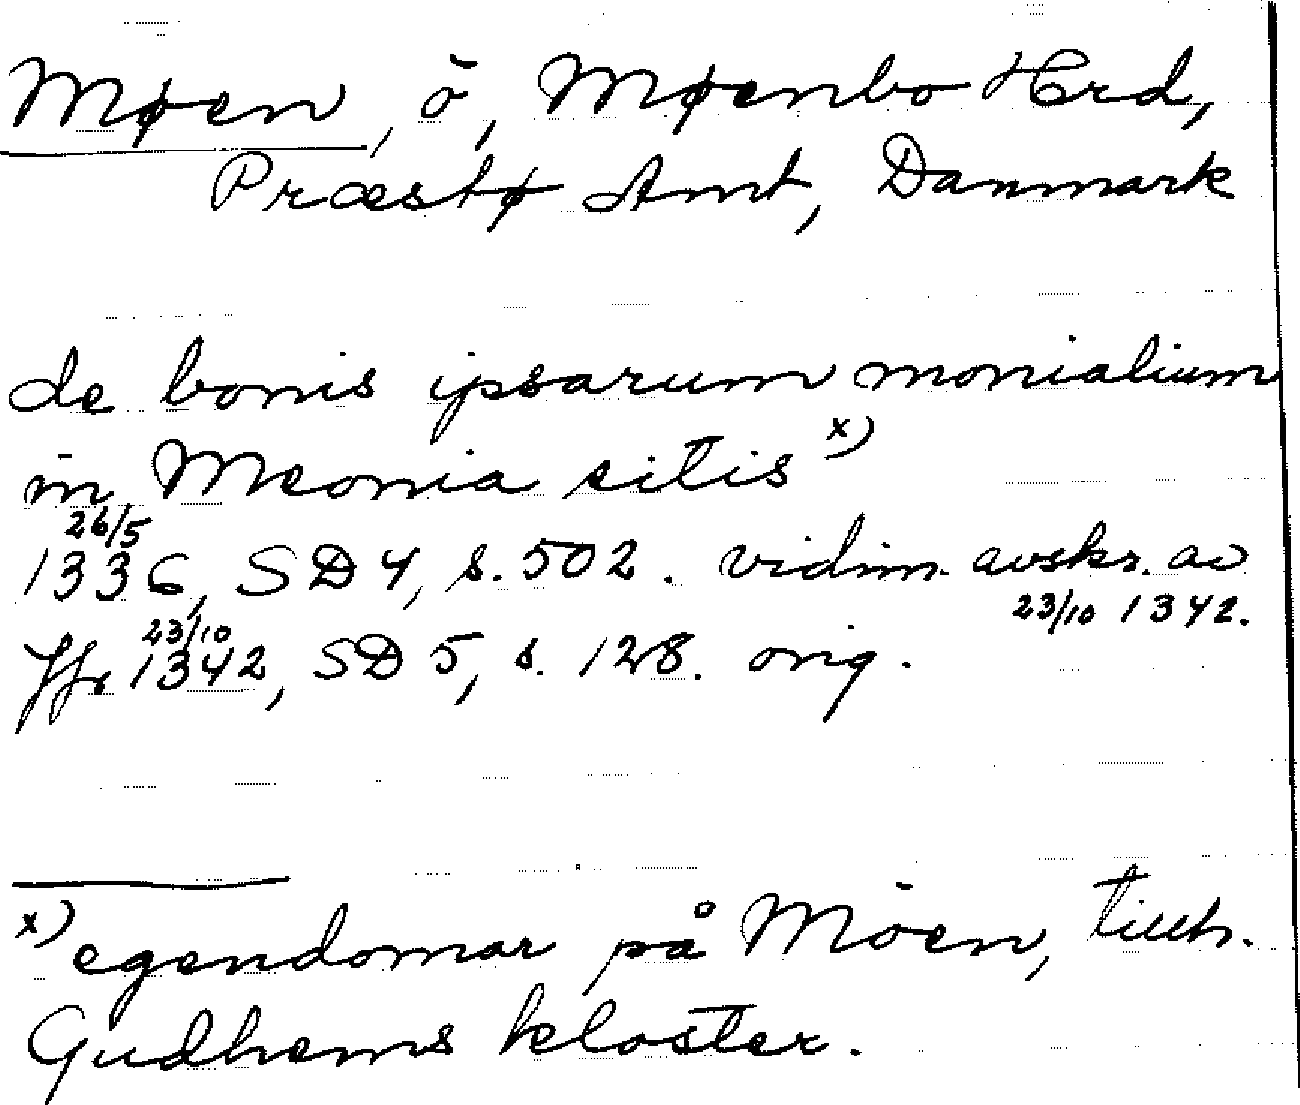 Møen, ö, Mønbo Hrd,
Præstø Amt, Danmark
de bonis ipsarum monialium
in Meonia sitis x)
26/5
1336, SD 4, s. 502. vidim. avskr. av
23/10 1342.
Jfr 23/10 1342, SD 5, s. 128. orig.
x) egendomar på Möen, tillh.
Gudhems kloster.